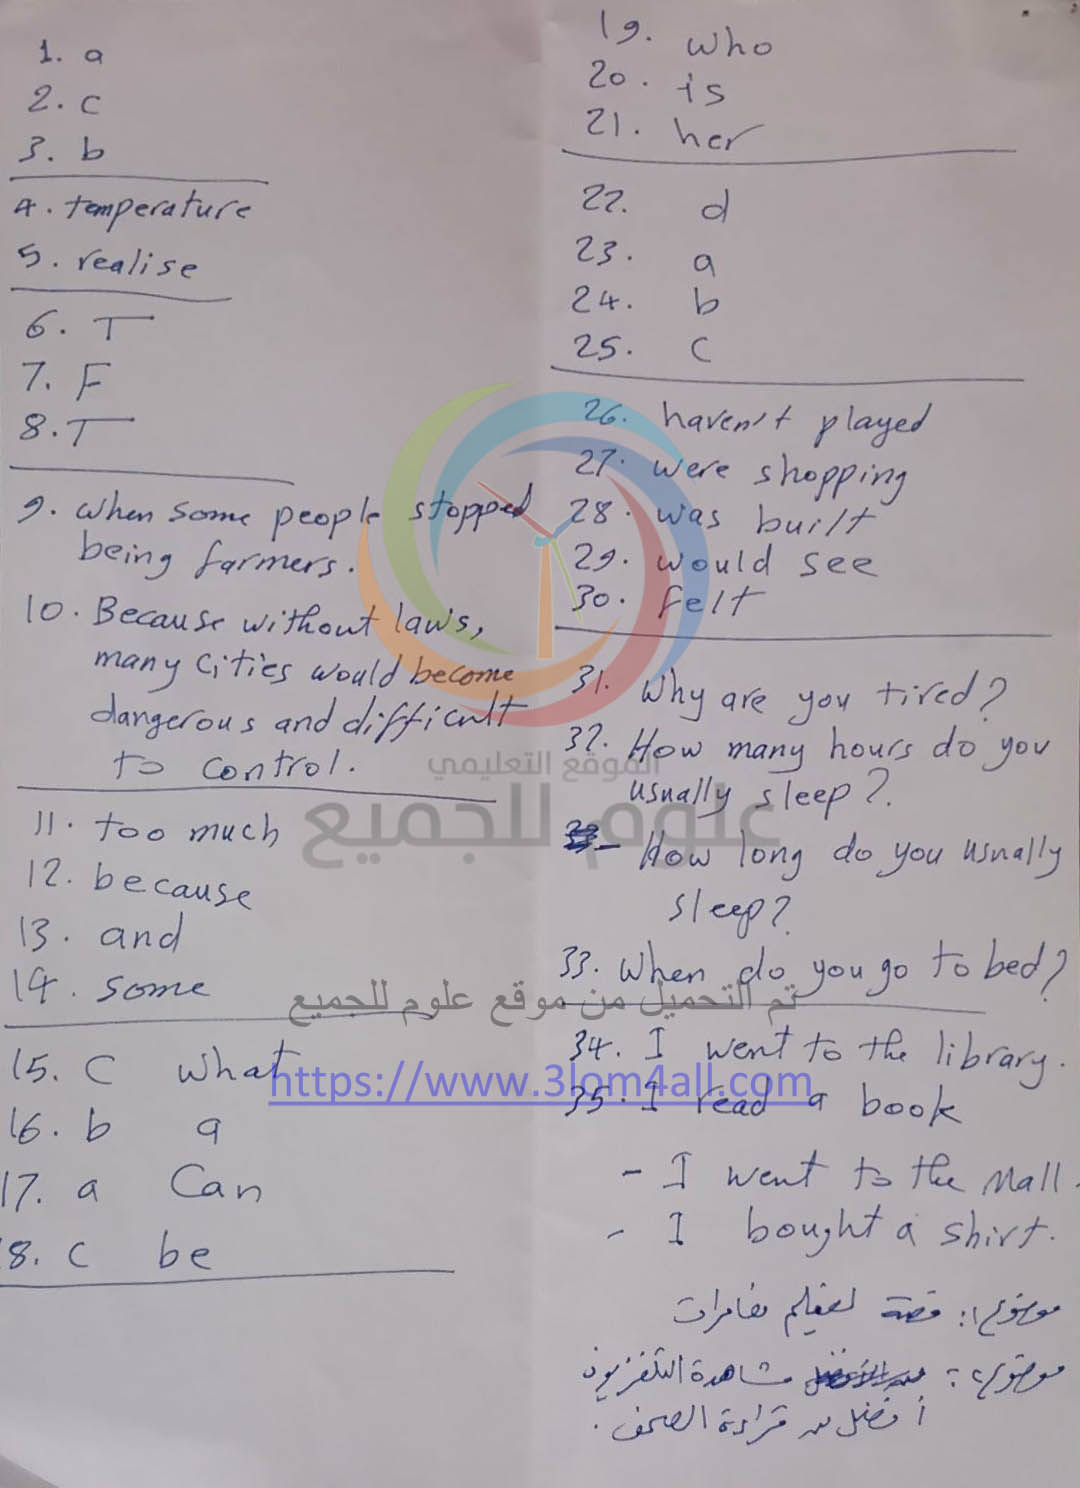 1. a
2. c
3. b
4. temperature
5. realise
6. T
7. F
8. T
9. when some people stopped
being farmers.
10. Because without laws,
many cities would become
dangerous and difficult
to control.
11. too much
12. because
13. and
14. some
15. C what
16. b a
17. a Can
18. C be
19. who
20. is
21. her
22. d
23. a
24. b
25. C
26. haven't played
27. were shopping
28. was built
29. would see
30. felt
31. Why are you tired?
32. How many hours do you
usually sleep?.
- How long do you usually
sleep?
33. When do you go to bed?
34. I went to the library.
35. I read a book
- I went to the Mall.
- I bought a shirt.
موضوع 1: قصة لفيلم مغامرات
موضوع 2: مشاهدة التلفزيون
أفضل من قراءة الصحف.
الموقع التعليمي
علوم للجميع
تم التحميل من موقع علوم للجميع
https://www.3lom4all.com